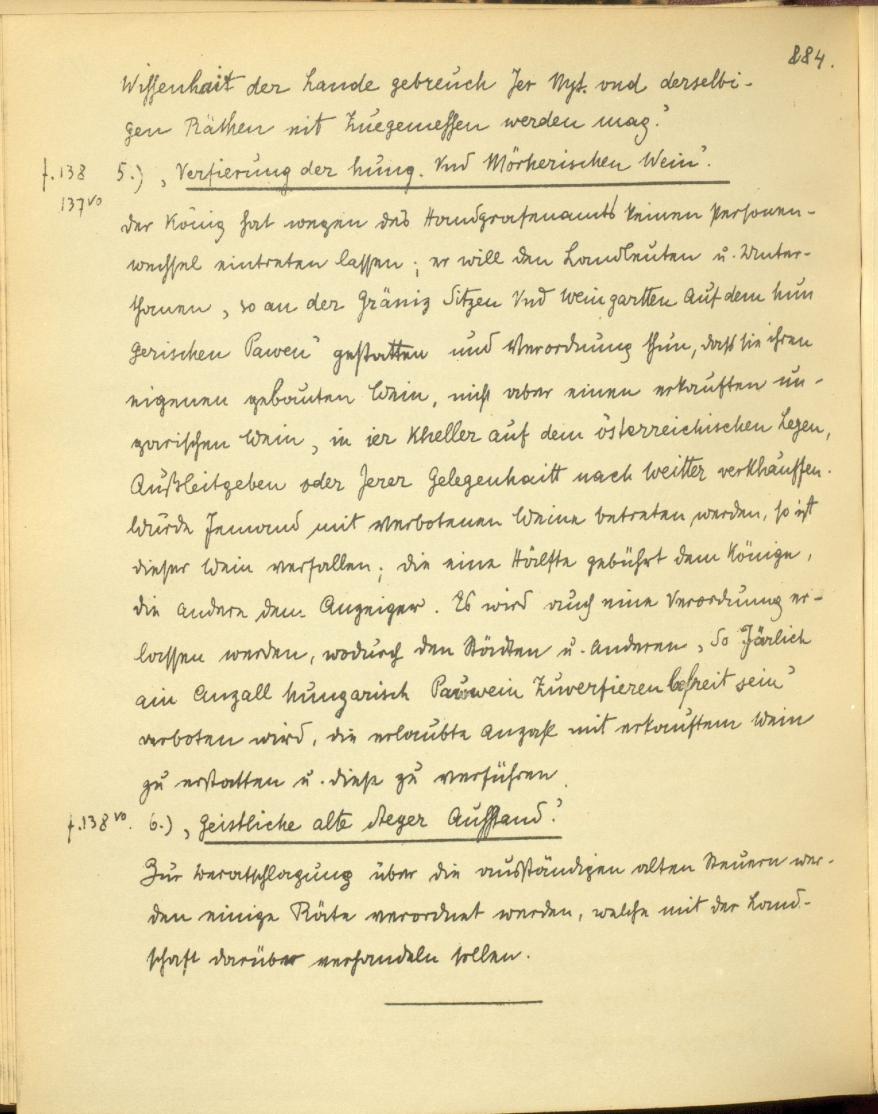 884.
Wissenhait der Lande gebreuch Jer Myt. vnd derselbi-
gen Räthen nit Zuegemessen werden mag.“
f. 138 5.) „Verfierung der hung. Vnd Mörherischen Wein“.
137 vo
Der König hat wegen des Handgrafenamts keinen Personen-
wechsel eintreten lassen; er will den Landleuten u. Unter-
thanen „so an der Gräniz Sitzen Vnd Weingartten Auf dem hun
gerischen Pawen“ gestatten und Verordnung thun, dass sie ihren
eigenen gebauten Wein, nicht aber einen erkauften un-
garischen Wein „in ier Kheller auf dem österreichischen Legen,
Außleitgeben oder Jerer Gelegenhaitt nach Weitter verkhauffen.
Würde Jemand mit verbotenem Weine betreten werden, so ist
dieser Wein verfallen; die eine Hälfte gebührt dem Könige,
die andere dem Anzeiger. Es wird auch eine Verordnung er-
lassen werden, wodurch den Städten u. anderen „So Järlich
ain Anzall hungarisch Pauwein Zuverfieren befreit sein“
verboten wird, die erlaubte Anzahl mit erkauftem Wein
zu erstatten u. diese zu verführen.
f. 138 vo. 6.) „Geistliche alte Steyer Ausstand.“
Zur Beratschlagung über die ausständigen alten Steuern wer-
den einige Räte verordnet werden, welche mit der Land-
schaft darüber verhandeln sollen.